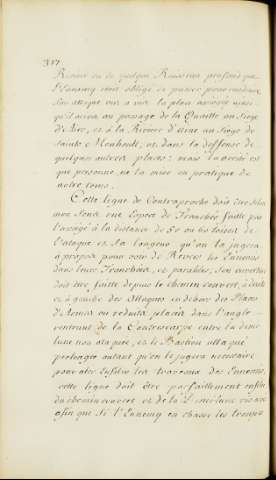 317
Riviere ou de quelque Ruisseau profond que
l'Ennemy etoit obligé de passer pour conduire
son attaque vis a vis la place assiegée ainsi
qu'il arriva au passage de la au Siege
d'Aire, et à la Riviere d'aisne au Siege de
Sainte Menhoult, et dans la deffense de
quelques autres places; mais la verité est
que personne ne la mise en pratique de
notre tems.
Cette ligne de Contraproche doit être selon
mon sens une Espece de Tranchée faitte par
l'assiegé à la distance de 50 ou 60 toises de
l'attaque et sa longueur qu'on la jugera
à propos pour voir de Revers les Ennemis
dans leurs Tranchées, et paralelles, son ouverture
doit être faitte depuis le chemin couvert, à droite
et à gauche des Attaques en dehors des Places
d'Armes ou reduits placés dans l'angle
rentrant de la Contrescarpe entre la demi
lune non attaquée, et le Bastion attaqué
prolongée autant qu'on le jugera necessaire
pour aller Enfiler les travaux des Ennemis,
cette ligne doit être parfaittement enfilée
du chemin couvert et de la
afin que si l'Ennemy en chasse les troupes